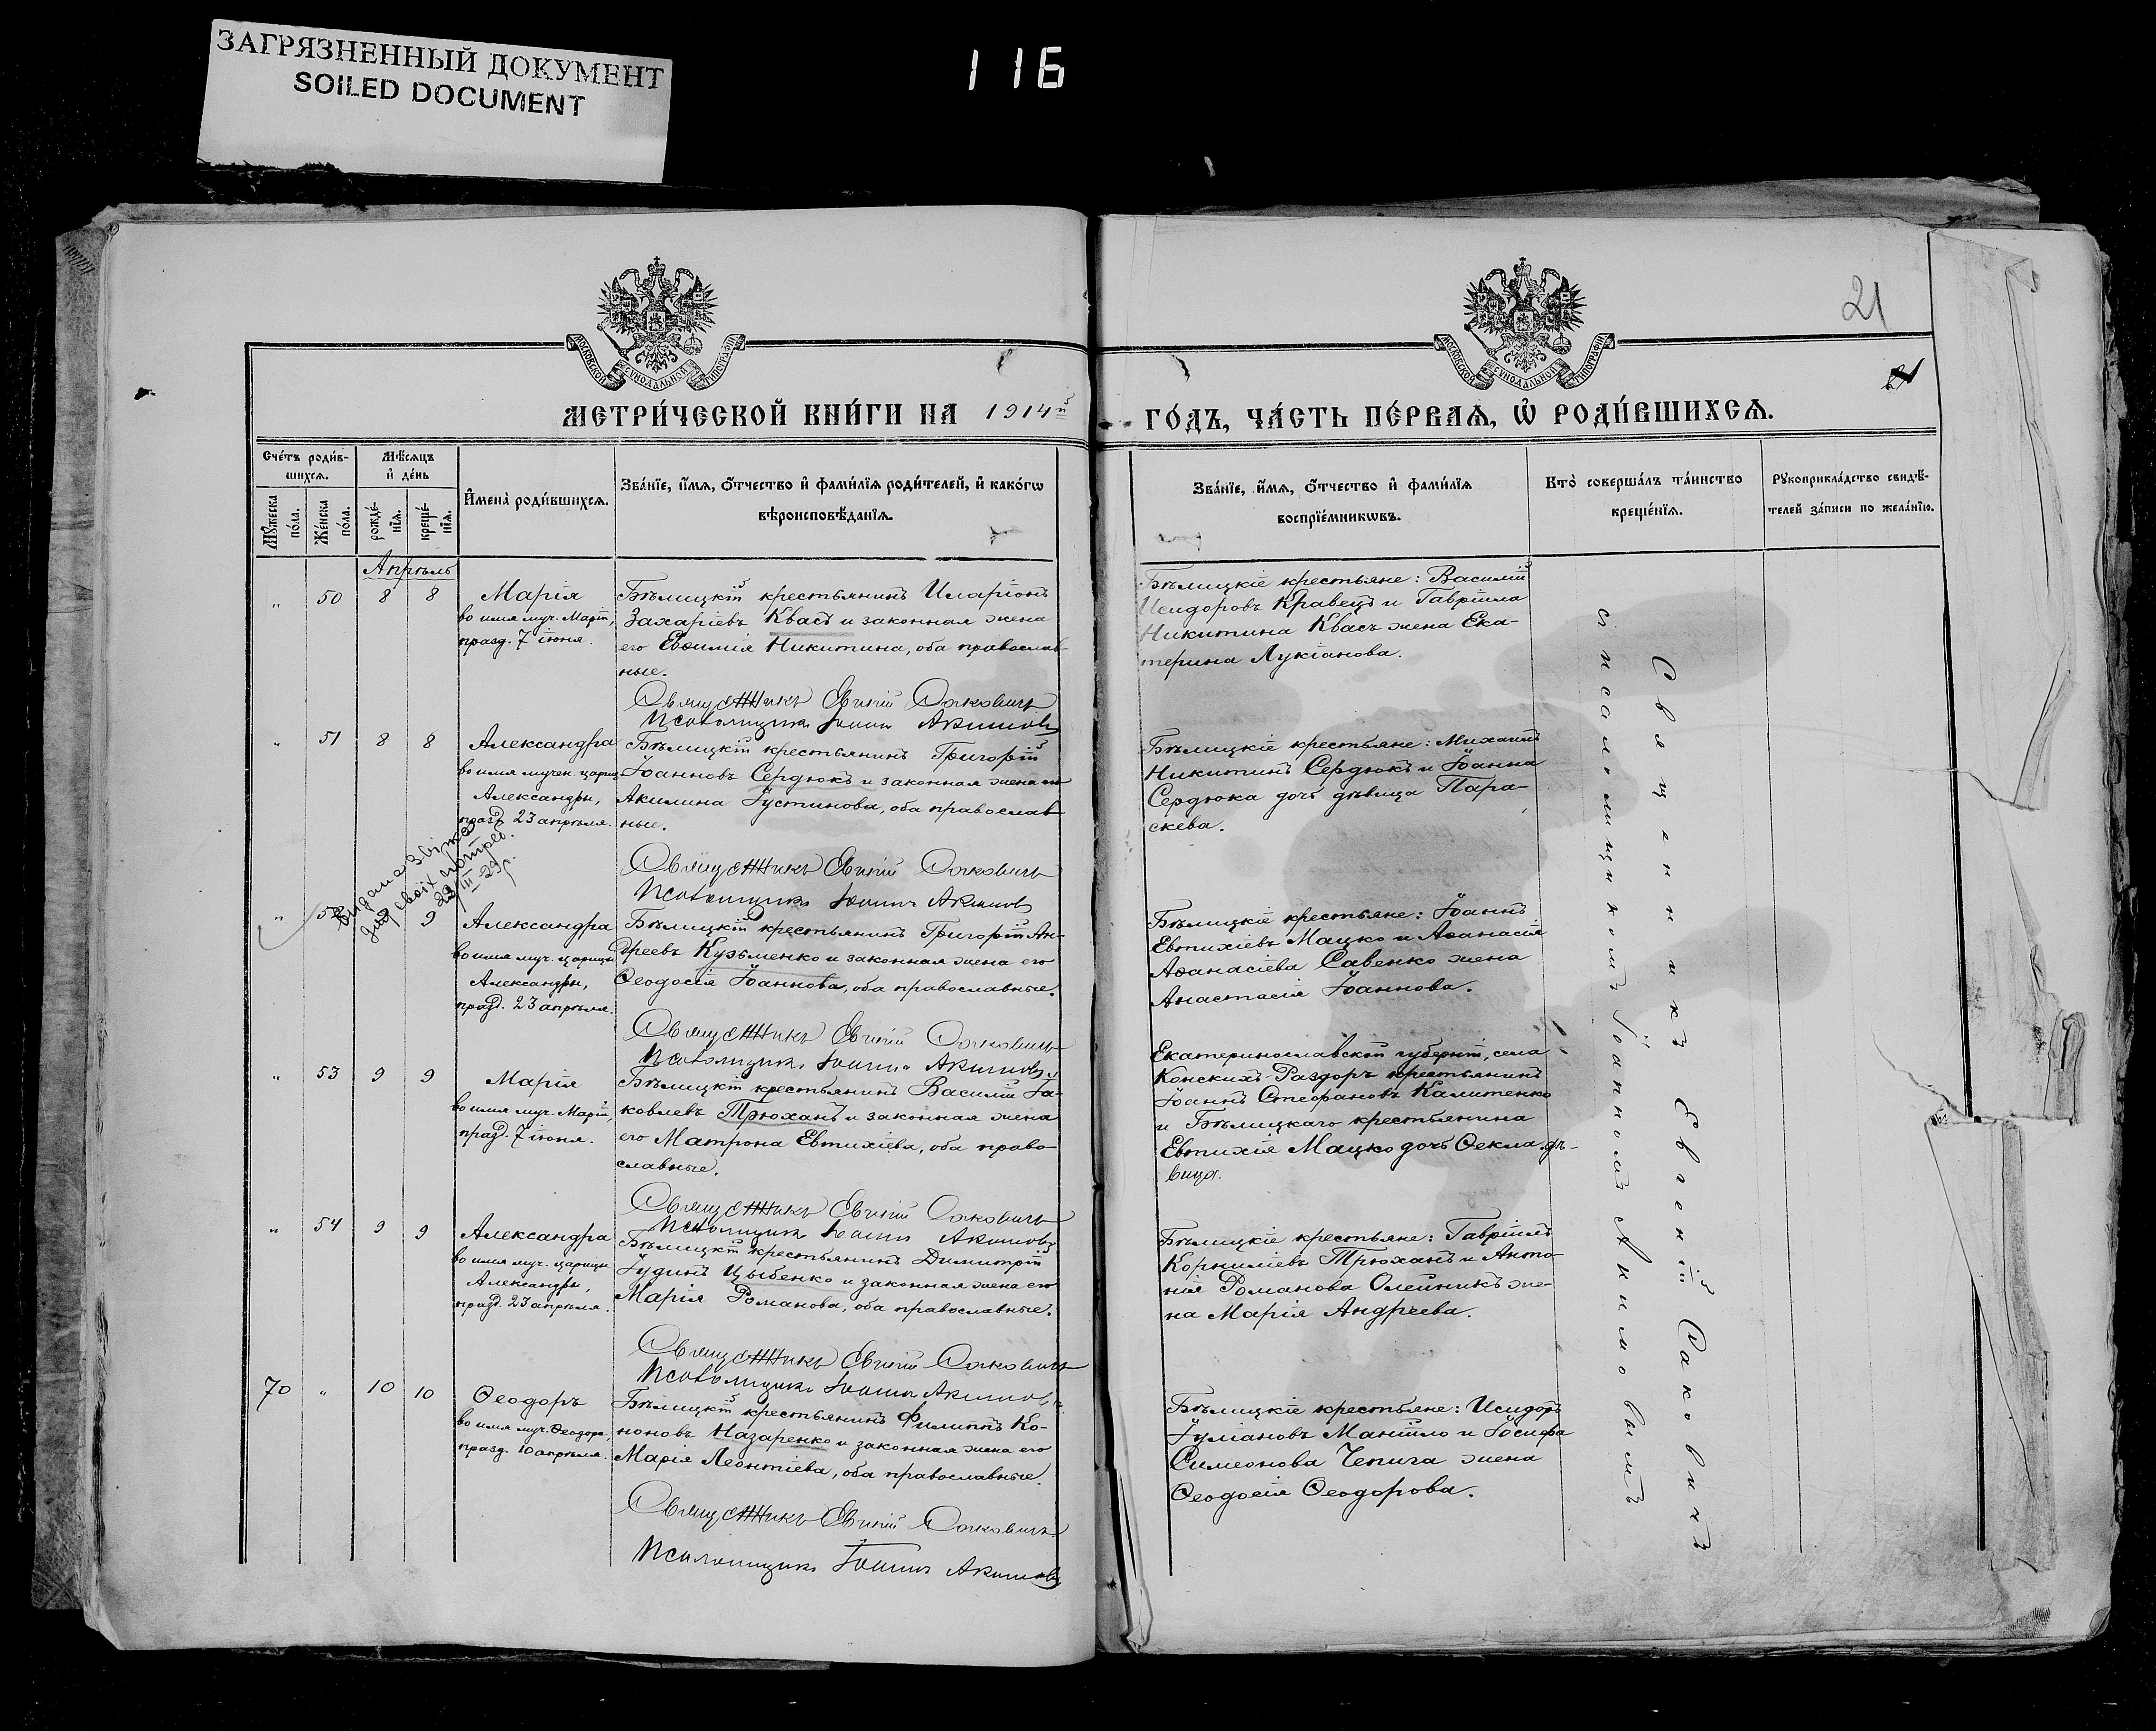 ЗАГРЯЗНЕННЫЙ ДОКУМЕНТ
SOILED DOCUMENT
116
21
МОСКОВСКОЙ СѴНОДАЛЬНОЙ ТИПОГРАФІИ
МОСКОВСКОЙ СѴНОДАЛЬНОЙ ТИПОГРАФІИ
МЕТРИ́ЧЕСКОЙ КНИ́ГИ НА 1914й
ГО́ДЪ, ЧА́СТЬ ПЕ́РВАѦ, Ѡ҆ РОДИ́ВШИХСѦ.
Сче́тъ роди́в-
шихсѧ.
Мѣ́сѧцъ
и҆ де́нь
Мꙋ́жеска
по́ла.
Же́нска
по́ла.
рожде́-
нїѧ.
креще́-
нїѧ.
И҆мена̀ роди́вшихсѧ.
Зва́нїе, и҆́мѧ, ѻ҆́тчество и҆ фами́лїѧ роди́телей, и҆ како́гѡ
вѣроисповѣ́данїѧ.
Зва́нїе, и҆́мѧ, ѻ҆́тчество и҆ фами́лїѧ
воспрїе́мникѡвъ.
Кто̀ соверша́лъ та́инство
креще́нїѧ.
Рꙋкоприкла́дство свидѣ́-
телей за́писи по жела́нїю.
Апрѣль
" 50 8 8
Марія
во имя муч. Маріи,
празд. 7 іюня.
Бѣлицкій крестьянинъ Иларіонъ
Захаріевъ Квасъ и законная жена
его Евѳимія Никитина, оба православ-
ные.
Священникъ Евгеній Саковичъ
Псаломщикъ Іоаннъ Акимовъ
Бѣлицкіе крестьяне: Василій
Исидоровъ Кравецъ и Гавріила
Никитина Квасъ жена Ека-
терина Лукіанова.
" 51 8 8
Александра
во имя мучен. цариц.
Александры,
празд. 23 апрѣля.
Бѣлицкій крестьянинъ Григорій
Іоанновъ Сердюкъ и законная жена его
Акилина Іустинова, оба православ-
ные.
Священникъ Евгеній Саковичъ
Псаломщикъ Іоаннъ Акимовъ
Бѣлицкіе крестьяне: Михаилъ
Никитинъ Сердюкъ и Іоанна
Сердюка дочь дѣвица Пара-
скева.
22/III-29р.
9
Александра
во имя муч. царицы
Александры,
празд. 23 апрѣля.
Бѣлицкій крестьянинъ Григорій Ан-
дреевъ Кузьменко и законная жена его
Ѳеодосія Іоаннова, оба православные.
Священникъ Евгеній Саковичъ
Псаломщикъ Іоаннъ Акимовъ
Бѣлицкіе крестьяне: Іоаннъ
Евтихіевъ Мацко и Аѳанасія
Аѳанасіева Савенко жена
Анастасія Іоаннова.
" 53 9 9
Марія
во имя муч. Маріи,
празд. 7 іюня.
Бѣлицкій крестьянинъ Василій Іа-
ковлевъ Трюханъ и законная жена
его Матрона Евтихіева, оба право-
славные.
Священникъ Евгеній Саковичъ
Псаломщикъ Іоаннъ Акимовъ
Екатеринославской губерніи, села
Конскихъ-Раздоръ крестьянинъ
Іоаннъ Стефановъ Калитенко
и Бѣлицкаго крестьянина
Евтихія Мацко дочь Ѳекла дѣ-
вица.
" 54 9 9
Александра
во имя муч. царицы
Александры,
празд. 23 апрѣля.
Бѣлицкій крестьянинъ Димитрій
Іудинъ Цыбенко и законная жена его
Марія Романова, оба православные.
Священникъ Евгеній Саковичъ
Псаломщикъ Іоаннъ Акимовъ
Бѣлицкіе крестьяне: Гавріилъ
Корниліевъ Трюханъ и Анто-
нія Романова Олейникъ же-
на Марія Андреева.
70 " 10 10
Ѳеодоръ
во имя муч. Ѳеодора,
празд. 10 апрѣля.
Бѣлицкій крестьянинъ Филиппъ Ко-
ноновъ Назаренко и законная жена его
Марія Леонтіева, оба православные.
Священникъ Евгеній Саковичъ
Псаломщикъ Іоаннъ Акимовъ
Бѣлицкіе крестьяне: Исидоръ
Іуліановъ Манйло и Іосифа
Симеонова Чепига жена
Ѳеодосія Ѳеодорова.
Священникъ Евгеній Саковичъ
съ псаломщикомъ Іоанномъ Акимовымъ